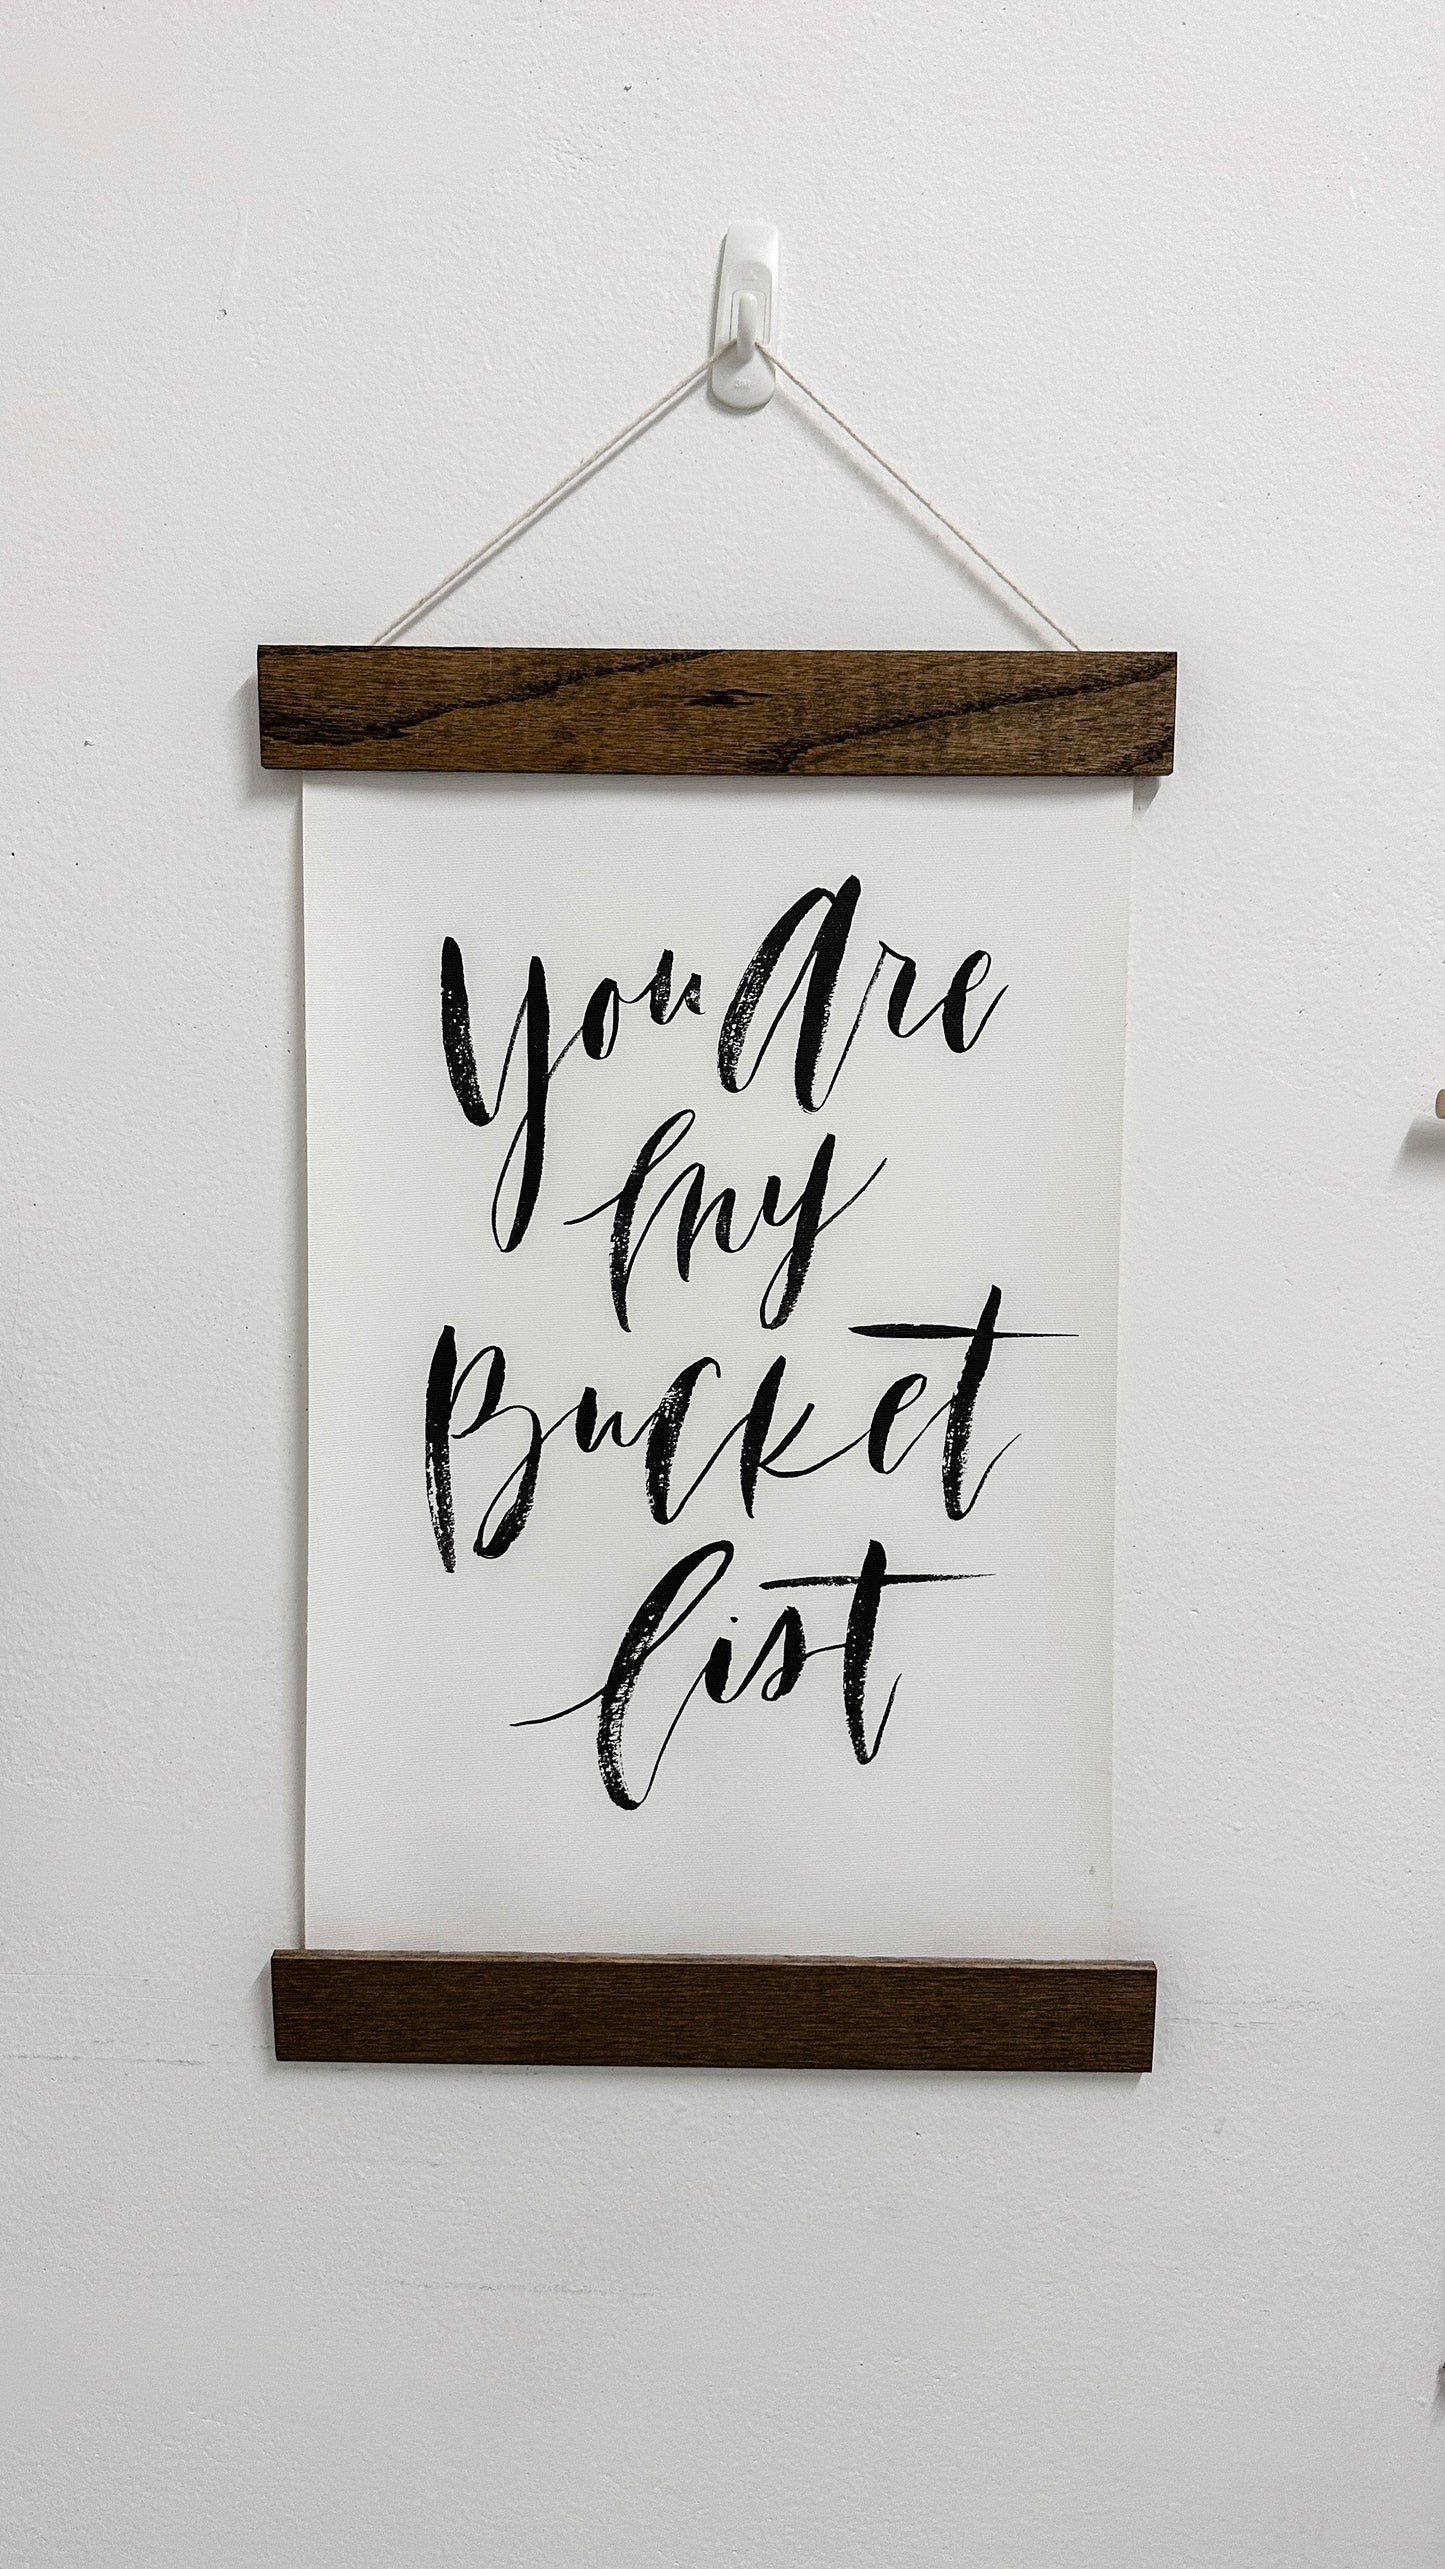 3M
You Are
My
Bucket
List